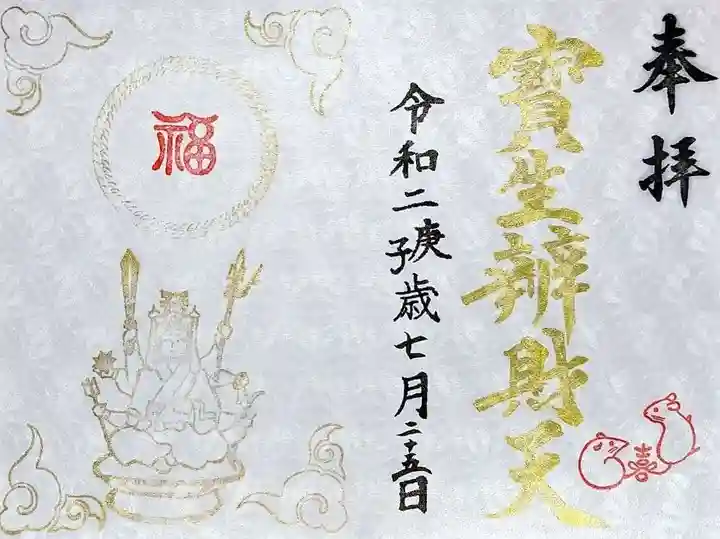 奉拝
寶生辨財天
令和二庚子歳七月二十五日
福
喜